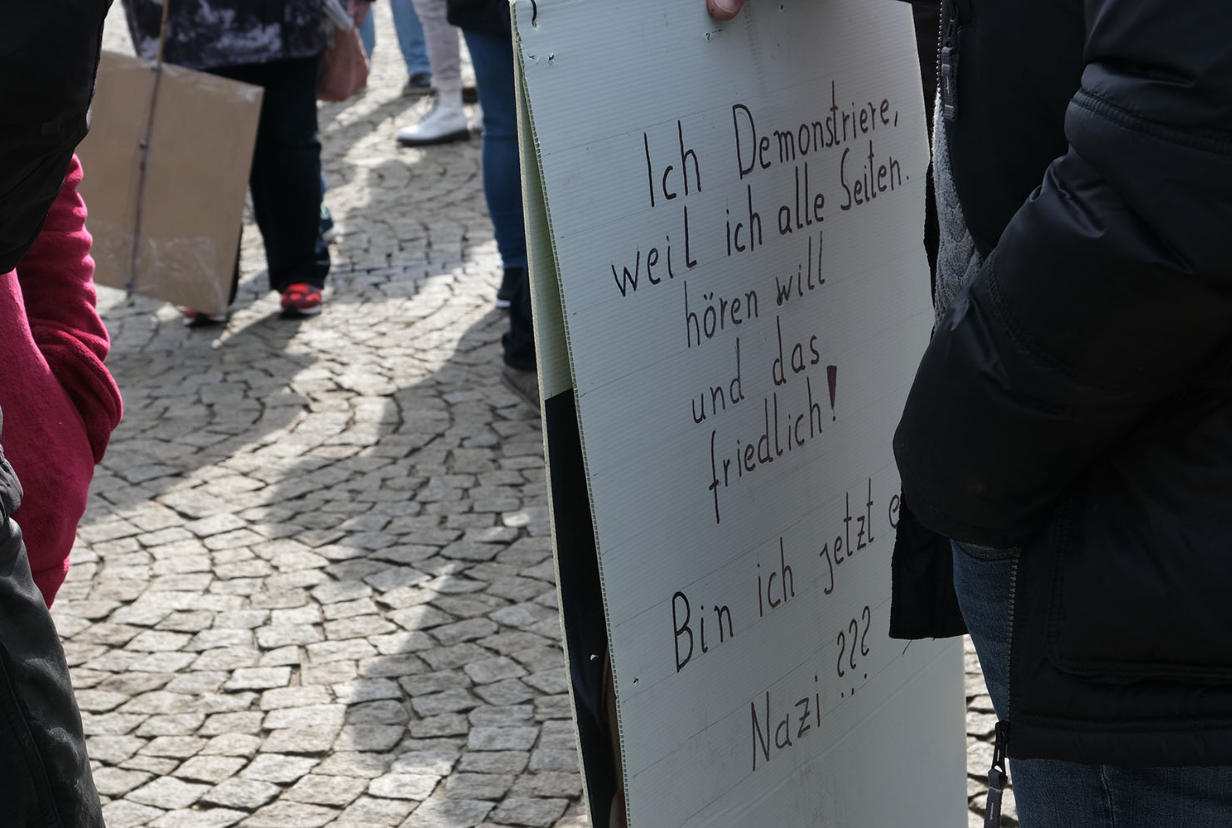 Ich Demonstriere,
weil ich alle Seiten.
hören will
und das
friedlich!
Bin ich jetzt
Nazi ???